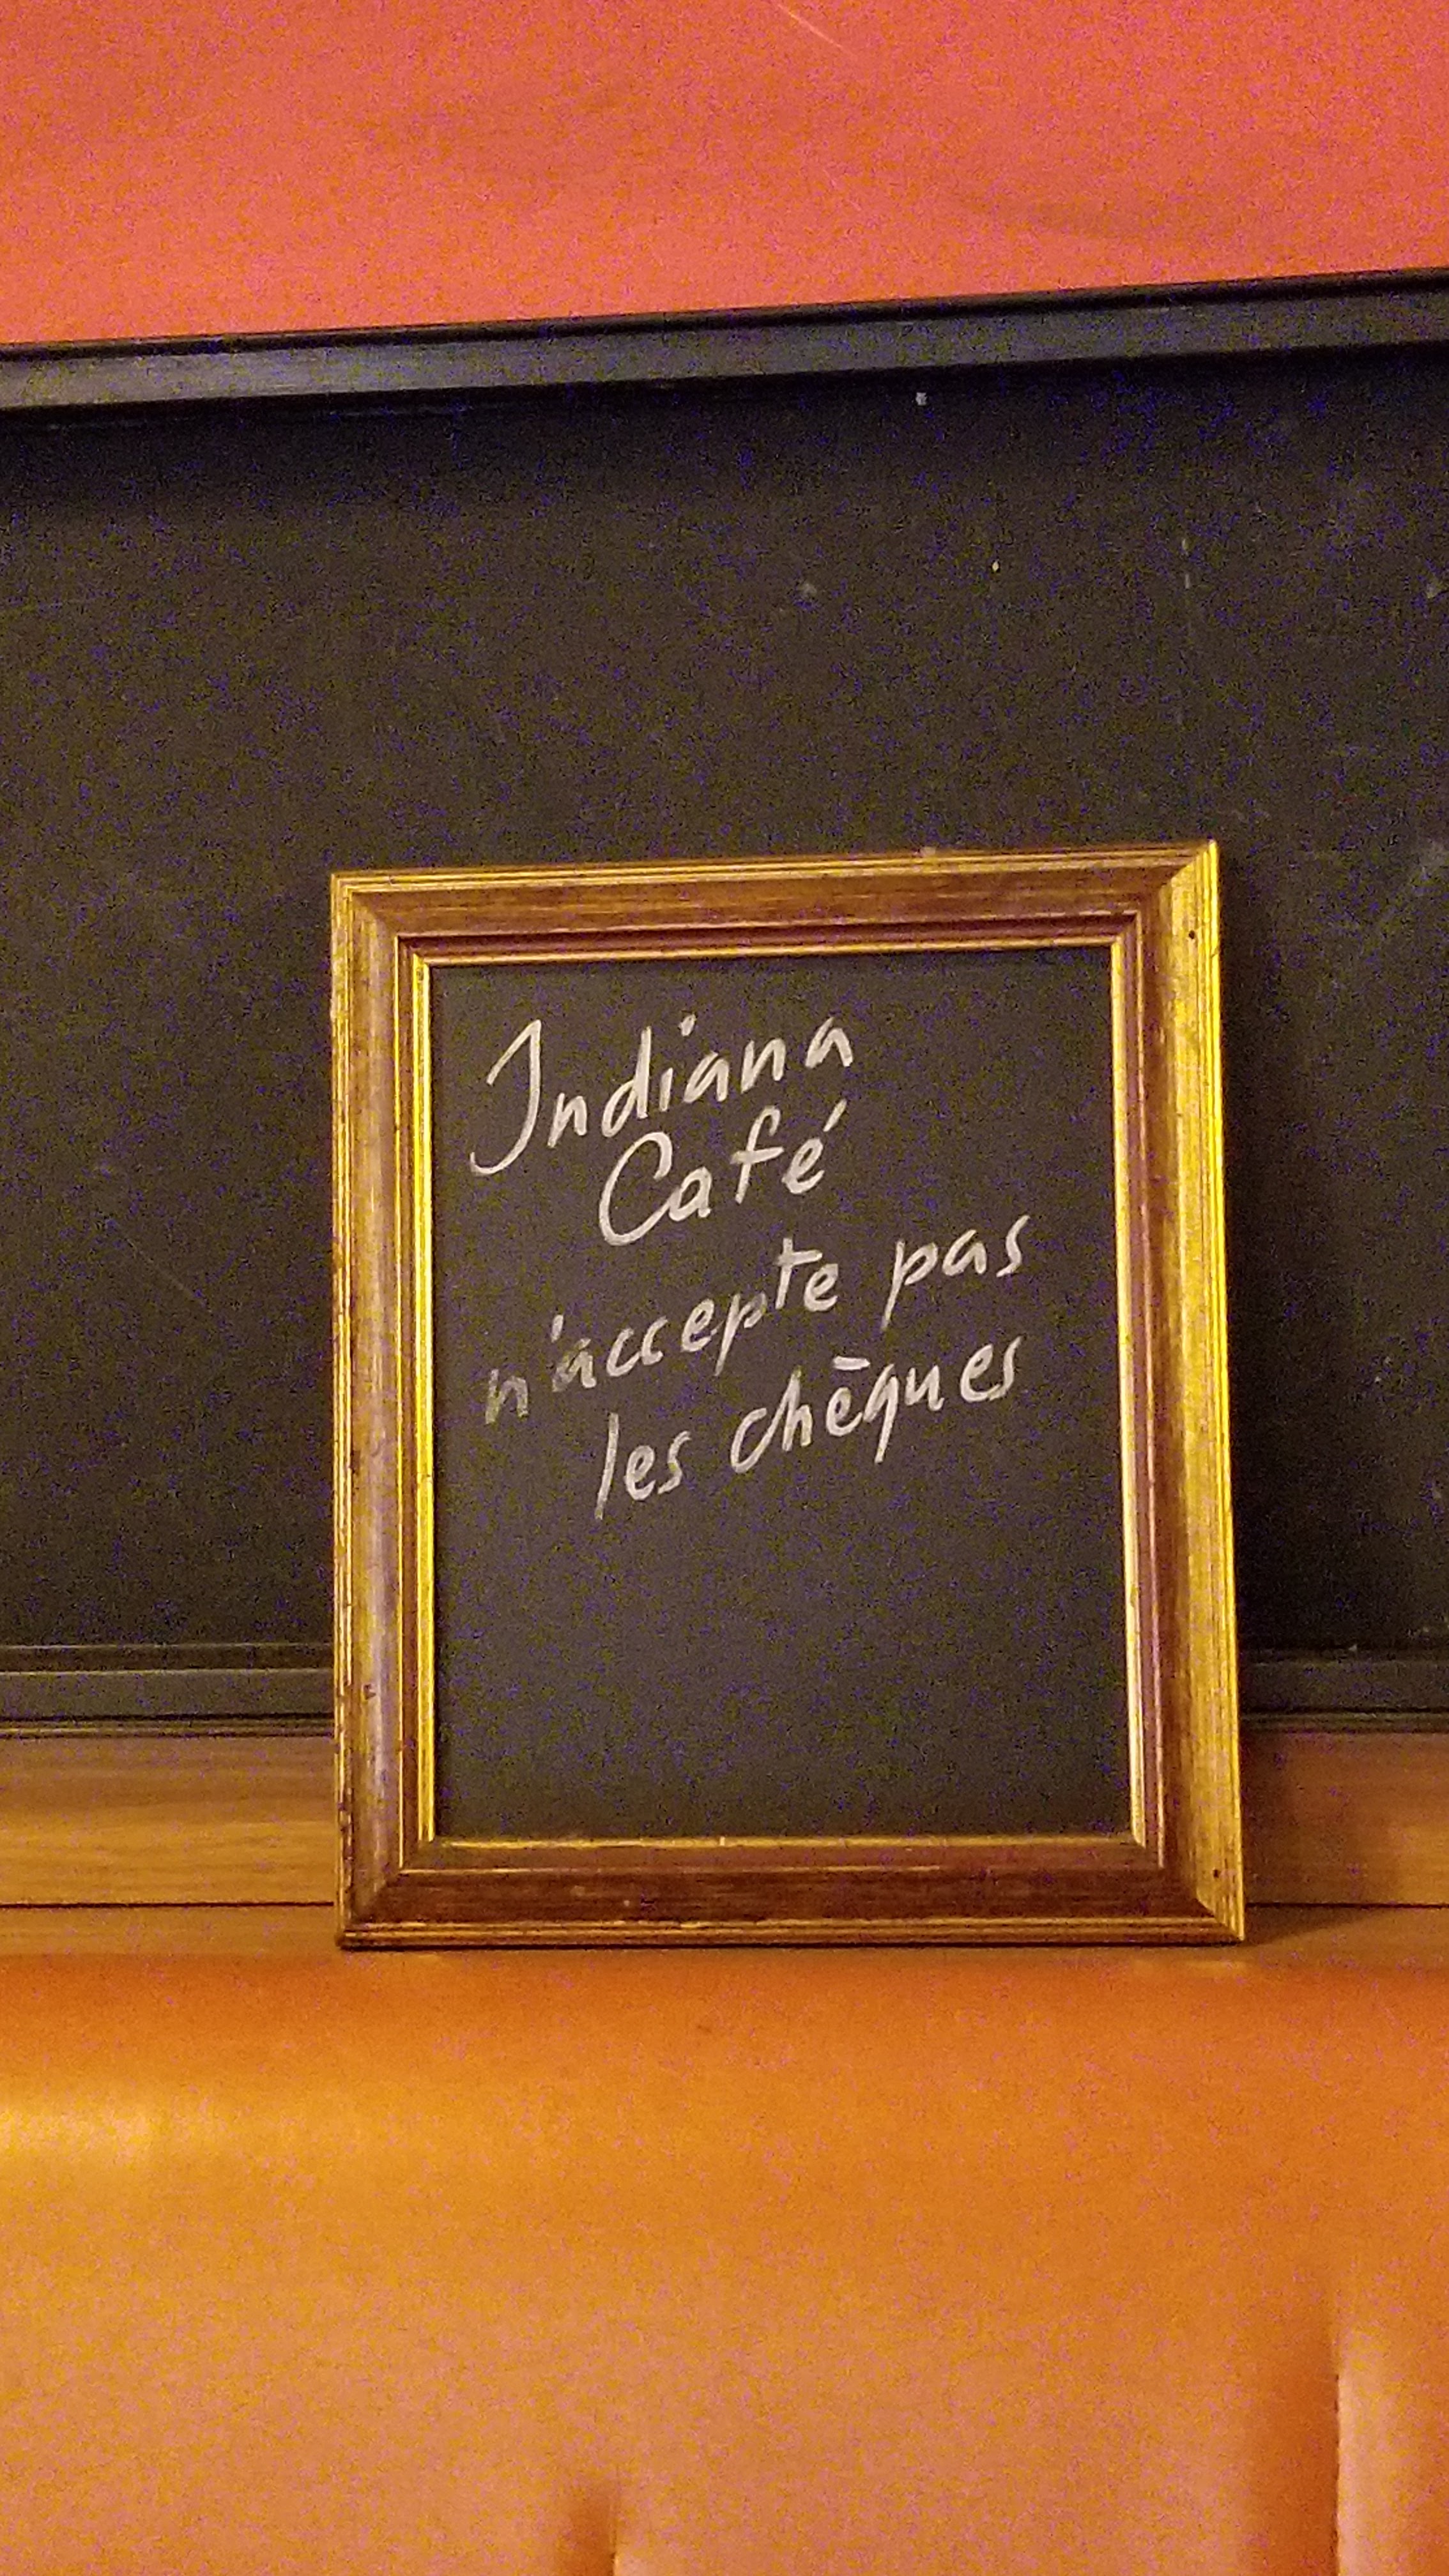 Indiana
Café
n'accepte pas
les chèques